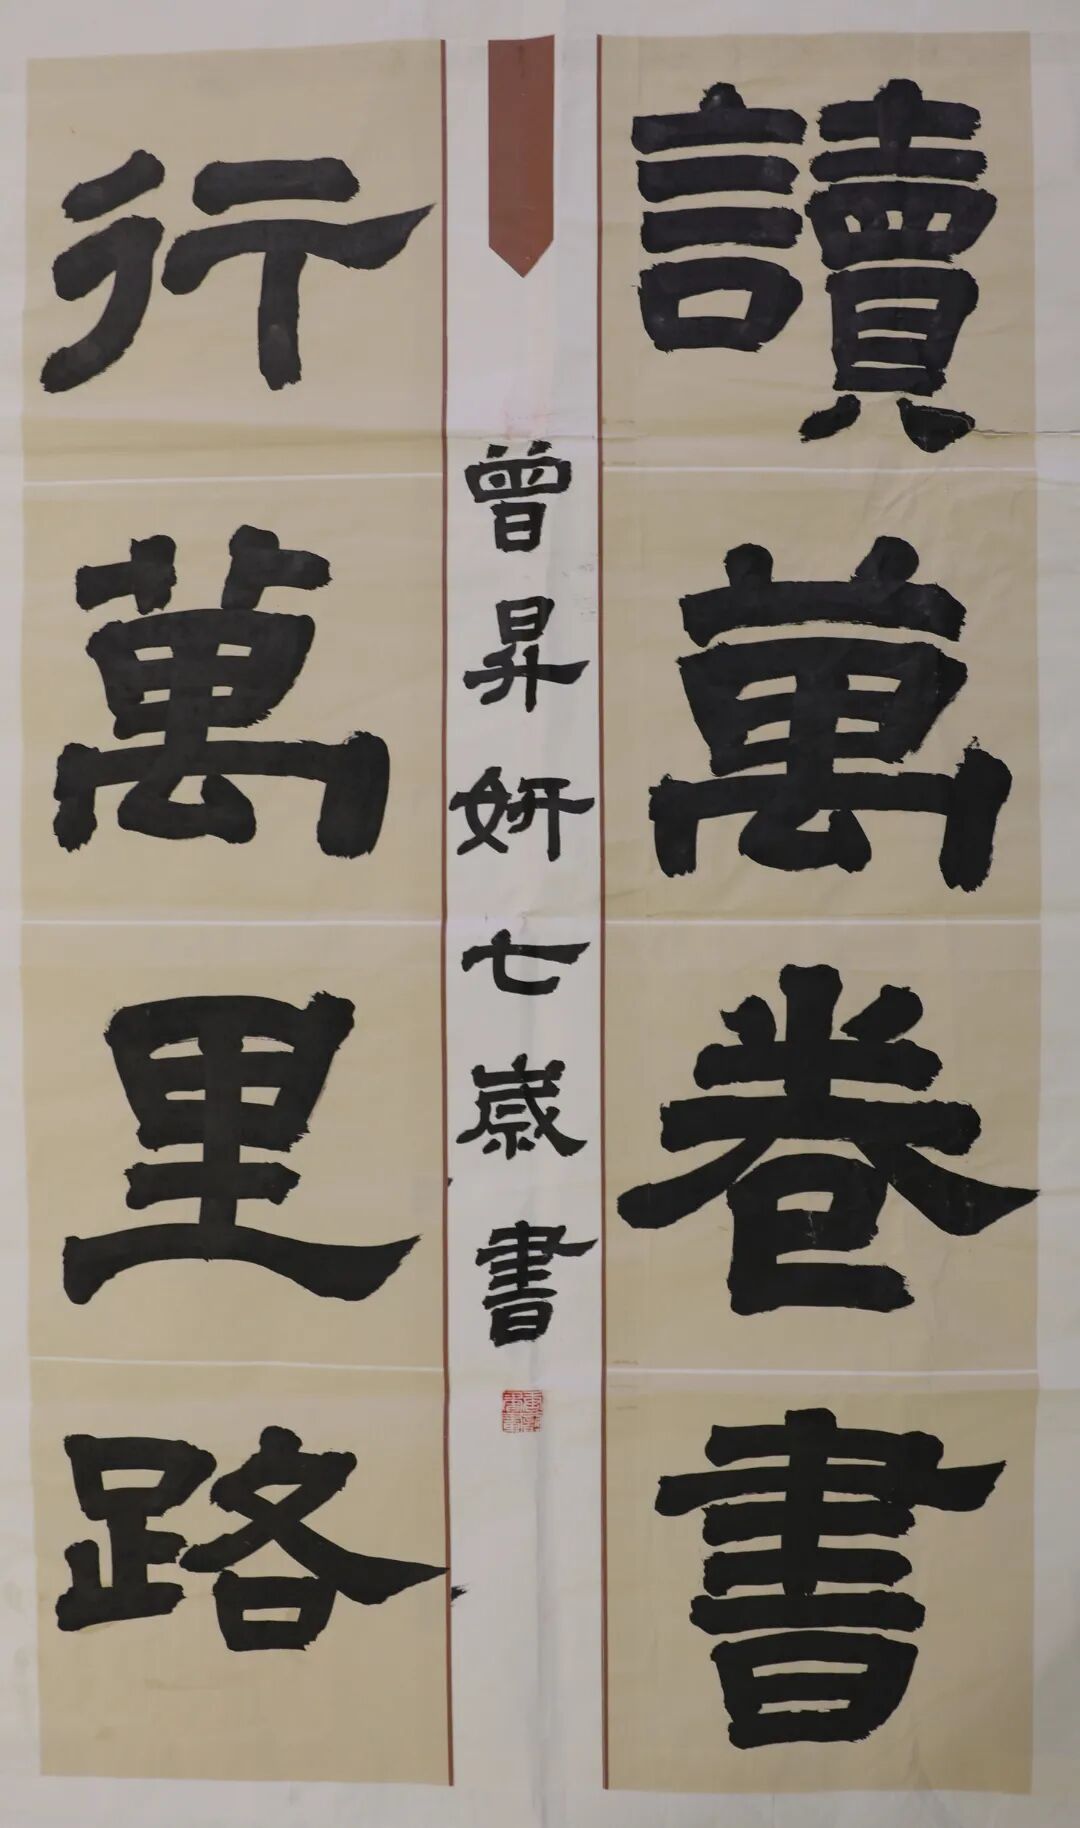 讀萬卷書
行萬里路
曾昇妍七歲書